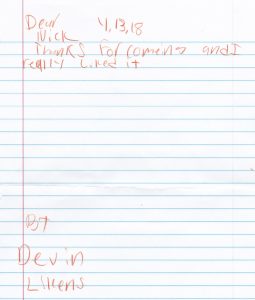 Dear 4,13,18
Nick
Thanks for comeing and I
really liked it
By
Devin
Likens